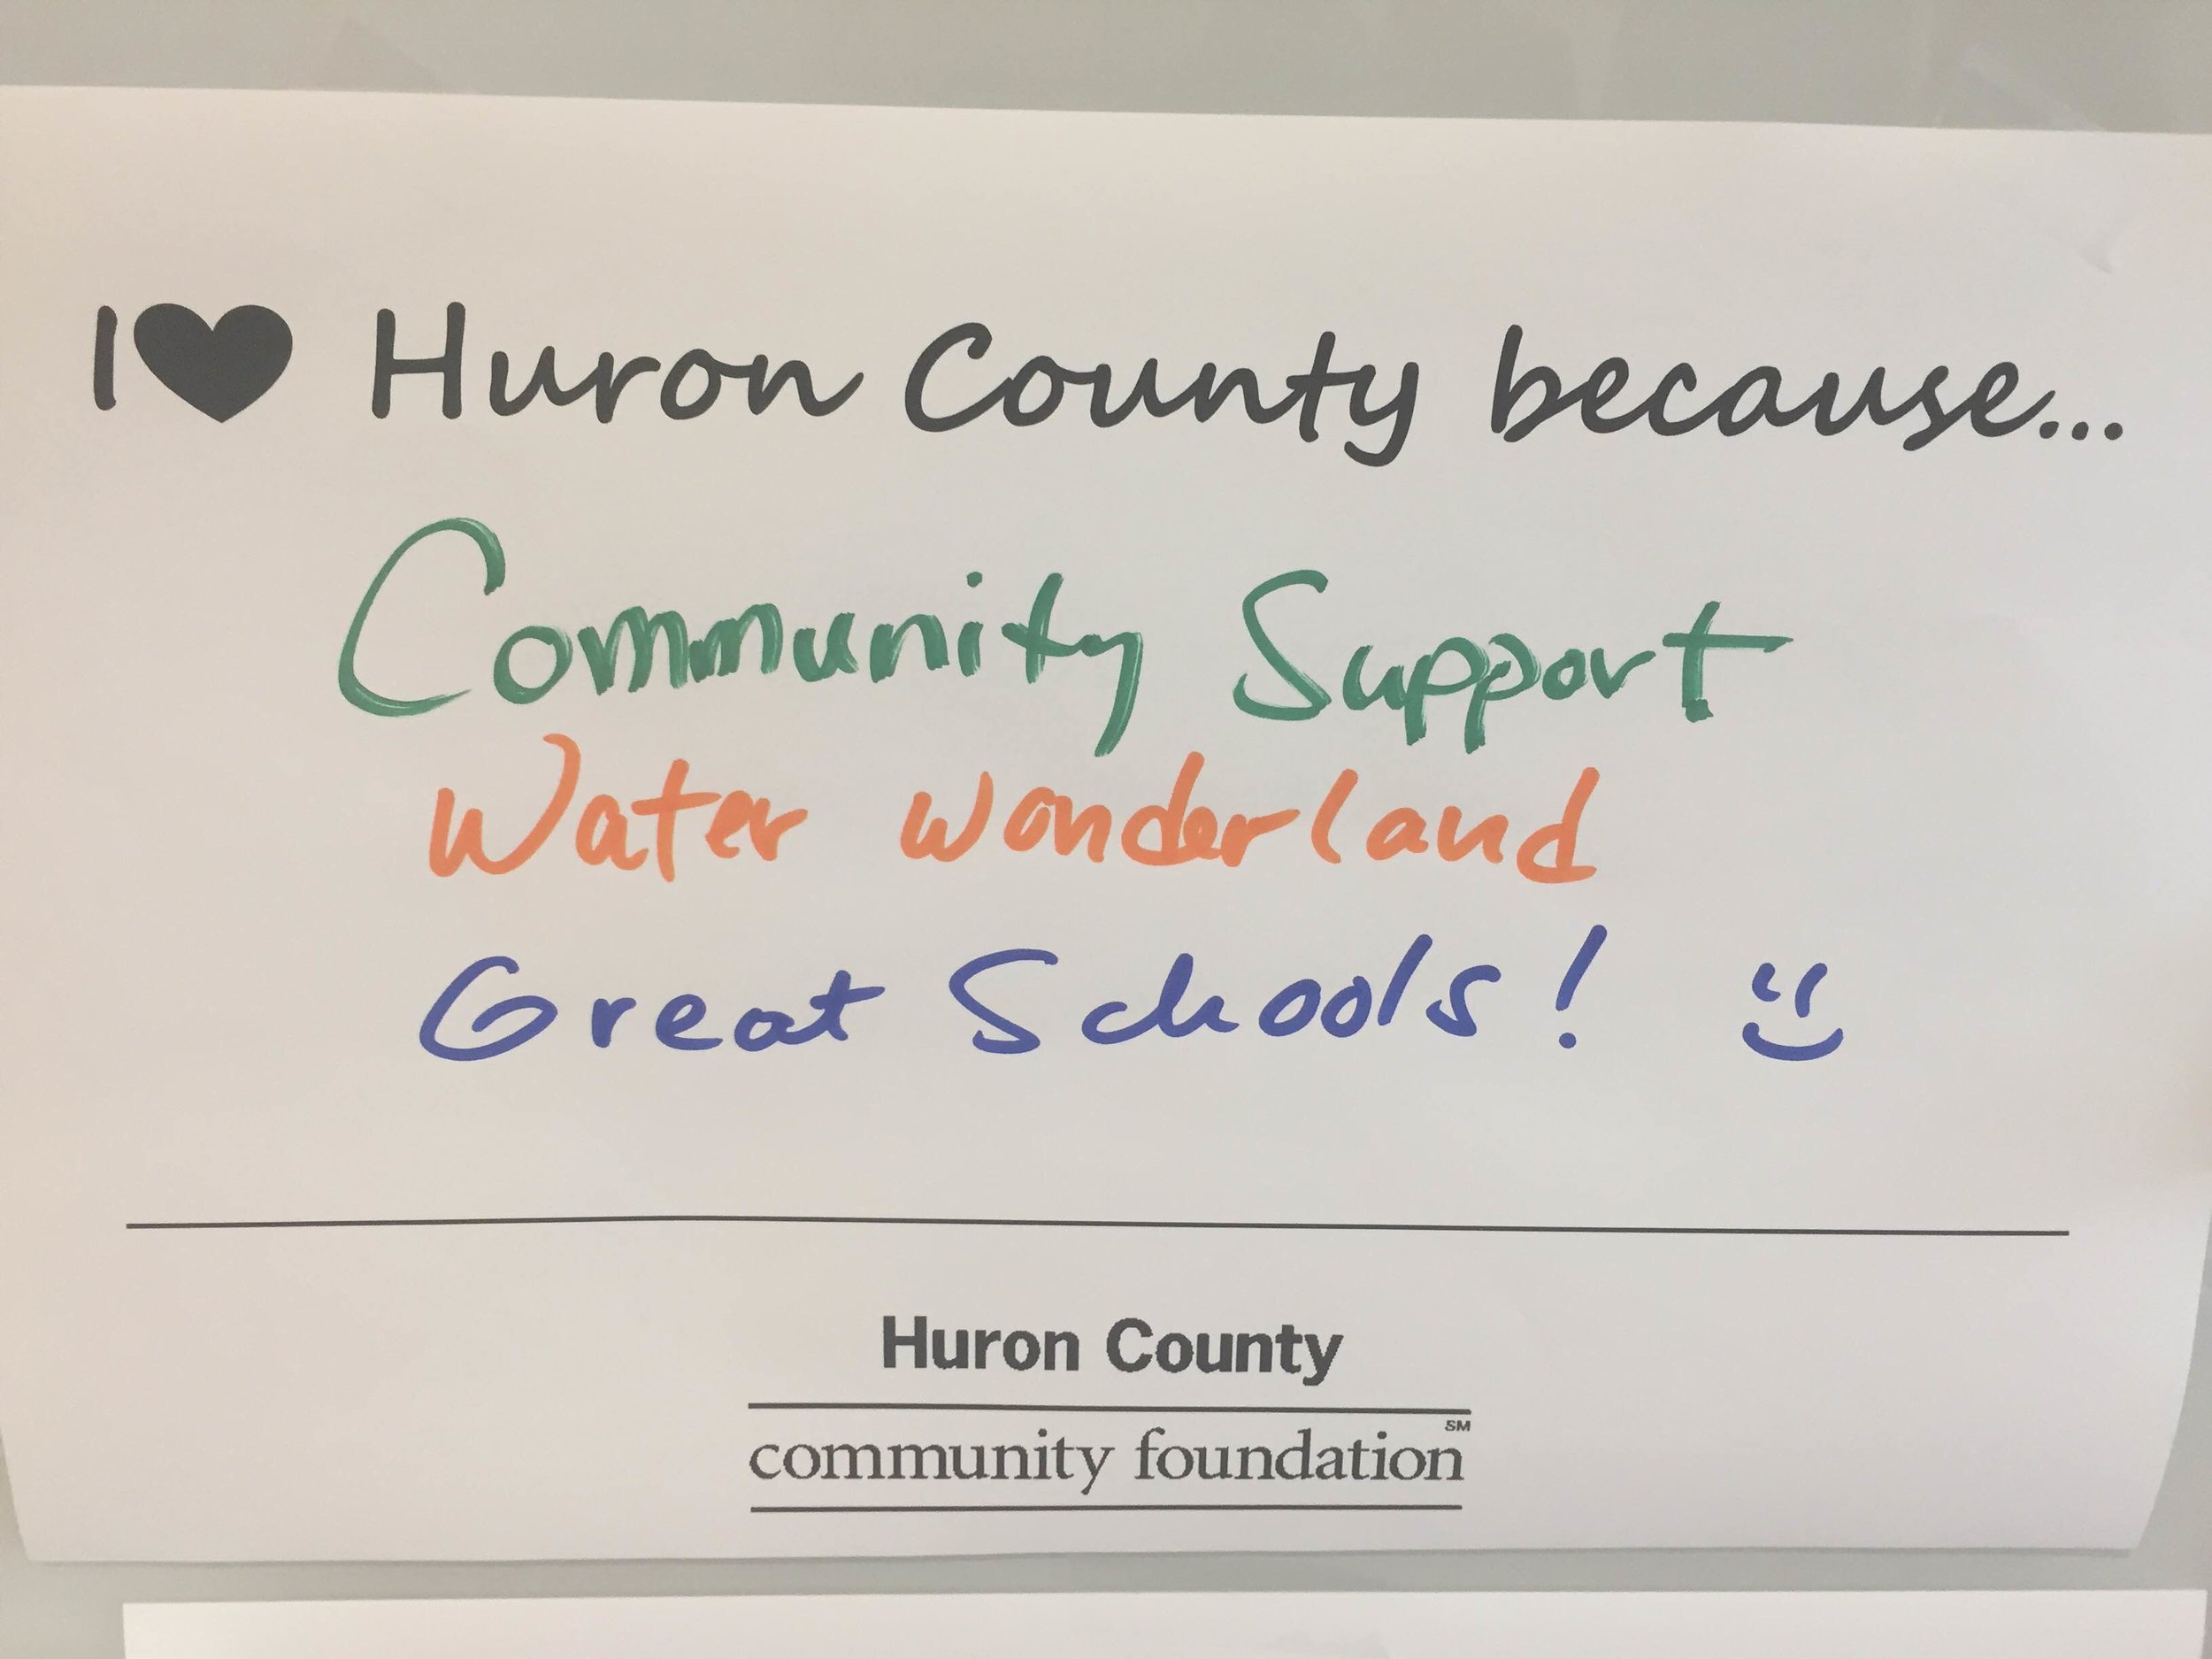 I ♥ Huron County because...
Community Support
Water wonderland
Great Schools! :)
Huron County
community foundation SM